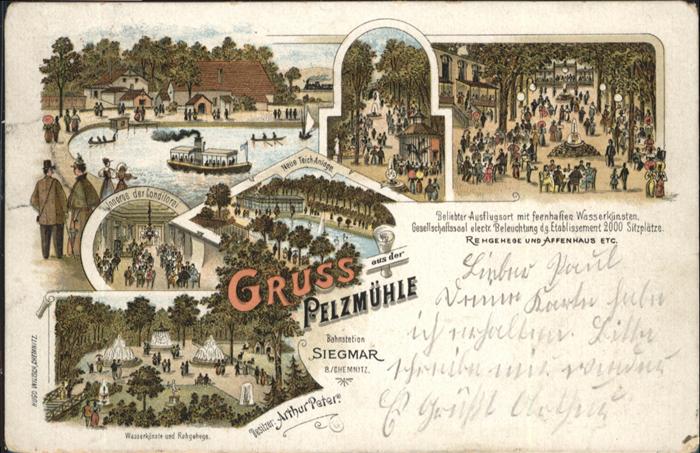 Neue Teich Anlage.
Inneres der Conditorei
Beliebter Ausflugsort mit feenhaften Wasserkünsten,
Gesellschaftssaal electr. Beleuchtung d.g. Etablissement 2000 Sitzplätze.
REHGEHEGE UND AFFENHAUS ETC.
GRUSS aus der
PELZMÜHLE
Bahnstation
SIEGMAR
B/CHEMNITZ.
Besitzer: Arthur Peter
Wasserkünste und Rehgehege.
HUGO WINDSCH, CHEMNITZ
Lieber Paul
Deine Karte habe
ich erhalten. Bitte
schreibe mir wieder
Es Grüßt Arthur